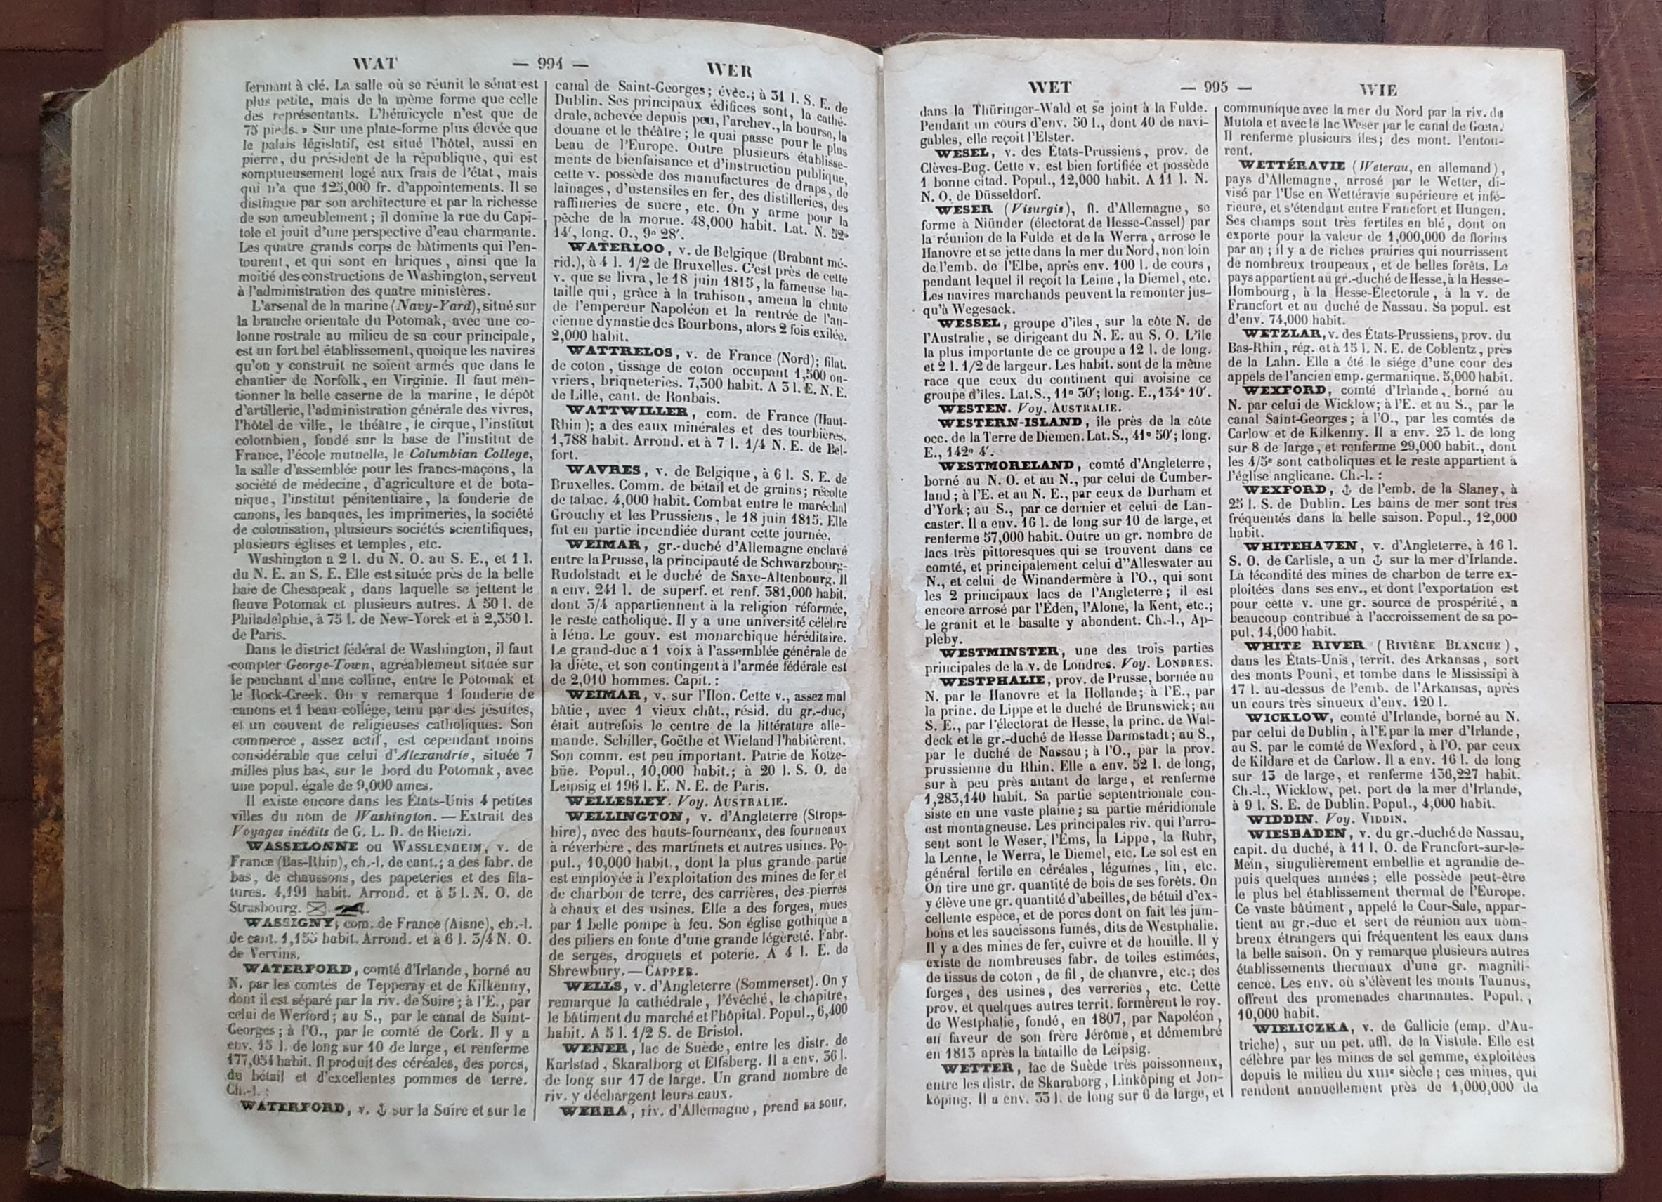 WAT — 994 — WER
fermant à clé. La salle où se réunit le sénat est
plus petite, mais de la même forme que celle
des représentants. L'hémicycle n'est que de
75 pieds. » Sur une plate-forme plus élevée que
le palais législatif, est situé l'hôtel, aussi en
pierre, du président de la république, qui est
somptueusement logé aux frais de l'état, mais
qui n'a que 125,000 fr. d'appointements. Il se
distingue par son architecture et par la richesse
de son ameublement ; il domine la rue du Capi-
tole et jouit d'une perspective d'eau charmante.
Les quatre grands corps de bâtiments qui l'en-
tourent, et qui sont en briques, ainsi que la
moitié des constructions de Washington, servent
à l'administration des quatre ministères.
L'arsenal de la marine (Navy-Yard), situé sur
la branche orientale du Potomak, avec une co-
lonne rostrale au milieu de sa cour principale,
est un fort bel établissement, quoique les navires
qu'on y construit ne soient armés que dans le
chantier de Norfolk, en Virginie. Il faut men-
tionner la belle caserne de la marine, le dépôt
d'artillerie, l'administration générale des vivres,
l'hôtel de ville, le théâtre, le cirque, l'institut
colombien, fondé sur la base de l'institut de
France, l'école mutuelle, le Columbian College,
la salle d'assemblée pour les francs-maçons, la
société de médecine, d'agriculture et de bota-
nique, l'institut pénitentiaire, la fonderie de
canons, les banques, les imprimeries, la société
de colonisation, plusieurs sociétés scientifiques,
plusieurs églises et temples, etc.
Washington a 2 l. du N. O. au S. E., et 1 l.
du N. E. au S. E. Elle est située près de la belle
baie de Chesapeak, dans laquelle se jettent le
fleuve Potomak et plusieurs autres. A 50 l. de
Philadelphie, à 75 l. de New-Yorck et à 2,350 l.
de Paris.
Dans le district fédéral de Washington, il faut
compter George-Town, agréablement située sur
le penchant d'une colline, entre le Potomak et
le Rock-Creek. On y remarque 1 fonderie de
canons et 1 beau collége, tenu par des jésuites,
et un couvent de religieuses catholiques. Son
commerce, assez actif, est cependant moins
considérable que celui d'Alexandrie, située 7
milles plus bas, sur le bord du Potomak, avec
une popul. égale de 9,000 ames.
Il existe encore dans les États-Unis 4 petites
villes du nom de Washington. — Extrait des
Voyages inédits de G. L. D. de Rienzi.
WASSELONNE ou WASSLENHEIM, v. de
France (Bas-Rhin), ch.-l. de cant. ; a des fabr. de
bas, de chaussons, des papeteries et des fila-
tures. 4,191 habit. Arrond. et à 5 l. N. O. de
Strasbourg.
WASSIGNY, com. de France (Aisne), ch.-l.
de cant. 1,155 habit. Arrond. et à 6 l. 3/4 N. O.
de Vervins.
WATERFORD, comté d'Irlande, borné au
N. par les comtés de Tepperay et de Kilkenny,
dont il est séparé par la riv. de Suire ; à l'E., par
celui de Werford ; au S., par le canal de Saint-
Georges ; à l'O., par le comté de Cork. Il y a
env. 15 l. de long sur 10 de large, et renferme
177,054 habit. Il produit des céréales, des porcs,
du bétail et d'excellentes pommes de terre.
Ch.-l. :
WATERFORD, v. ⚓ sur la Suire et sur le
canal de Saint-Georges ; évêc. ; à 31 l. S. E. de
Dublin. Ses principaux édifices sont, la cathé-
drale, achevée depuis peu, l'archev., la bourse, la
douane et le théâtre ; le quai passe pour le plus
beau de l'Europe. Outre plusieurs établisse-
ments de bienfaisance et d'instruction publique,
cette v. possède des manufactures de draps, de
lainages, d'ustensiles en fer, des distilleries, des
raffineries de sucre, etc. On y arme pour la
pêche de la morue. 48,000 habit. Lat. N. 52°
14', long. O., 9° 28'.
WATERLOO, v. de Belgique (Brabant mé-
rid.), à 4 l. 1/2 de Bruxelles. C'est près de cette
v. que se livra, le 18 juin 1815, la fameuse ba-
taille qui, grâce à la trahison, amena la chute
de l'empereur Napoléon et la rentrée de l'an-
cienne dynastie des Bourbons, alors 2 fois exilée.
2,000 habit.
WATTRELOS, v. de France (Nord) ; filat.
de coton, tissage de coton occupant 1,500 ou-
vriers, briqueteries. 7,300 habit. A 3 l. E. N. E.
de Lille, cant. de Roubais.
WATTWILLER, com. de France (Haut-
Rhin) ; a des eaux minérales et des tourbières.
1,788 habit. Arrond. et à 7 l. 1/4 N. E. de Bel-
fort.
WAVRES, v. de Belgique, à 6 l. S. E. de
Bruxelles. Comm. de bétail et de grains ; récolte
de tabac. 4,000 habit. Combat entre le maréchal
Grouchy et les Prussiens, le 18 juin 1815. Elle
fut en partie incendiée durant cette journée.
WEIMAR, gr.-duché d'Allemagne enclavé
entre la Prusse, la principauté de Schwarzbourg-
Rudolstadt et le duché de Saxe-Altenbourg. Il
a env. 241 l. de superf. et renf. 381,000 habit.
dont 3/4 appartiennent à la religion réformée,
le reste catholique. Il y a une université célèbre
à Iéna. Le gouv. est monarchique héréditaire.
Le grand-duc a 1 voix à l'assemblée générale de
la diète, et son contingent à l'armée fédérale est
de 2,010 hommes. Capit. :
WEIMAR, v. sur l'Ilon. Cette v., assez mal
bâtie, avec 1 vieux chât., résid. du gr.-duc,
était autrefois le centre de la littérature alle-
mande. Schiller, Goëthe et Wieland l'habitèrent.
Son comm. est peu important. Patrie de Kotze-
büe. Popul., 10,000 habit. ; à 20 l. S. O. de
Leipsig et 196 l. E. N. E. de Paris.
WELLESLEY. Voy. AUSTRALIE.
WELLINGTON, v. d'Angleterre (Strops-
hire), avec des hauts-fourneaux, des fourneaux
à réverbère, des martinets et autres usines. Po-
pul., 10,000 habit., dont la plus grande partie
est employée à l'exploitation des mines de fer et
de charbon de terre, des carrières, des pierres
à chaux et des usines. Elle a des forges, mues
par 1 belle pompe à feu. Son église gothique a
des piliers en fonte d'une grande légèreté. Fabr.
de serges, droguets et poterie. A 4 l. E. de
Shrewbury. — CAPPER.
WELLS, v. d'Angleterre (Sommerset). On y
remarque la cathédrale, l'évêché, le chapitre,
le bâtiment du marché et l'hôpital. Popul., 6,400
habit. A 5 l. 1/2 S. de Bristol.
WENER, lac de Suède, entre les distr. de
Karlstad, Skaralborg et Elfsberg. Il a env. 36 l.
de long sur 17 de large. Un grand nombre de
riv. y déchargent leurs eaux.
WERRA, riv. d'Allemagne, prend sa sour.
WET — 995 — WIE
dans la Thüringer-Wald et se joint à la Fulde.
Pendant un cours d'env. 50 l., dont 40 de navi-
gables, elle reçoit l'Elster.
WESEL, v. des États-Prussiens, prov. de
Clèves-Bug. Cette v. est bien fortifiée et possède
1 bonne citad. Popul., 12,000 habit. A 11 l. N.
N. O. de Düsseldorf.
WESER (Visurgis), fl. d'Allemagne, se
forme à Niünder (électorat de Hesse-Cassel) par
la réunion de la Fulde et de la Werra, arrose le
Hanovre et se jette dans la mer du Nord, non loin
de l'emb. de l'Elbe, après env. 100 l. de cours,
pendant lequel il reçoit la Leine, la Diemel, etc.
Les navires marchands peuvent la remonter jus-
qu'à Wegesack.
WESSEL, groupe d'îles, sur la côte N. de
l'Australie, se dirigeant du N. E. au S. O. L'île
la plus importante de ce groupe a 12 l. de long.
et 2 l. 1/2 de largeur. Les habit. sont de la même
race que ceux du continent qui avoisine ce
groupe d'îles. Lat. S., 11° 30' ; long. E., 134° 10'.
WESTEN. Voy. AUSTRALIE.
WESTERN-ISLAND, île près de la côte
occ. de la Terre de Diemen. Lat. S., 41° 50' ; long.
E., 142° 4'.
WESTMORELAND, comté d'Angleterre,
borné au N. O. et au N., par celui de Cumber-
land ; à l'E. et au N. E., par ceux de Durham et
d'York ; au S., par ce dernier et celui de Lan-
caster. Il a env. 16 l. de long sur 10 de large, et
renferme 57,000 habit. Outre un gr. nombre de
lacs très pittoresques qui se trouvent dans ce
comté, et principalement celui d'Alleswater au
N., et celui de Winandermère à l'O., qui sont
les 2 principaux lacs de l'Angleterre ; il est
encore arrosé par l'Éden, l'Alone, la Kent, etc. ;
le granit et le basalte y abondent. Ch.-l., Ap-
pleby.
WESTMINSTER, une des trois parties
principales de la v. de Londres. Voy. LONDRES.
WESTPHALIE, prov. de Prusse, bornée au
N. par le Hanovre et la Hollande ; à l'E., par
la princ. de Lippe et le duché de Brunswick ; au
S. E., par l'électorat de Hesse, la princ. de Wal-
deck et le gr.-duché de Hesse Darmstadt ; au S.,
par le duché de Nassau ; à l'O., par la prov.
prussienne du Rhin. Elle a env. 52 l. de long,
sur à peu près autant de large, et renferme
1,283,140 habit. Sa partie septentrionale con-
siste en une vaste plaine ; sa partie méridionale
est montagneuse. Les principales riv. qui l'arro-
sent sont le Weser, l'Ems, la Lippe, la Ruhr,
la Lenne, le Werra, le Diemel, etc. Le sol est en
général fertile en céréales, légumes, lin, etc.
On tire une gr. quantité de bois de ses forêts. On
y élève une gr. quantité d'abeilles, de bétail d'ex-
cellente espèce, et de porcs dont on fait les jam-
bons et les saucissons fumés, dits de Westphalie.
Il y a des mines de fer, cuivre et de houille. Il y
existe de nombreuses fabr. de toiles estimées,
de tissus de coton, de fil, de chanvre, etc. ; des
forges, des usines, des verreries, etc. Cette
prov. et quelques autres territ. formèrent le roy.
de Westphalie, fondé, en 1807, par Napoléon,
en faveur de son frère Jérôme, et démembré
en 1813 après la bataille de Leipsig.
WETTER, lac de Suède très poissonneux,
entre les distr. de Skaraborg, Linköping et Jon-
köping. Il a env. 33 l. de long sur 6 de large, et
communique avec la mer du Nord par la riv. de
Mutola et avec le lac Weser par le canal de Gœta.
Il renferme plusieurs îles ; des mont. l'entou-
rent.
WETTÉRAVIE (Weterau, en allemand),
pays d'Allemagne, arrosé par le Wetter, di-
visé par l'Use en Wettéravie supérieure et infé-
rieure, et s'étendant entre Francfort et Hungen.
Ses champs sont très fertiles en blé, dont on
exporte pour la valeur de 1,000,000 de florins
par an ; il y a de riches prairies qui nourrissent
de nombreux troupeaux, et de belles forêts. Le
pays appartient au gr.-duché de Hesse, à la Hesse-
Hombourg, à la Hesse-Électorale, à la v. de
Francfort et au duché de Nassau. Sa popul. est
d'env. 74,000 habit.
WETZLAR, v. des États-Prussiens, prov. du
Bas-Rhin, rég. et à 15 l. N. E. de Coblentz, près
de la Lahn. Elle a été le siége d'une cour des
appels de l'ancien emp. germanique. 5,000 habit.
WEXFORD, comté d'Irlande, borné au
N. par celui de Wicklow ; à l'E. et au S., par le
canal Saint-Georges ; à l'O., par les comtés de
Carlow et de Kilkenny. Il a env. 23 l. de long
sur 8 de large, et renferme 29,000 habit., dont
les 4/5e sont catholiques et le reste appartient à
l'église anglicane. Ch.-l. :
WEXFORD, ⚓ de l'emb. de la Slaney, à
25 l. S. de Dublin. Les bains de mer sont très
fréquentés dans la belle saison. Popul., 12,000
habit.
WHITEHAVEN, v. d'Angleterre, à 16 l.
S. O. de Carlisle, a un ⚓ sur la mer d'Irlande.
La fécondité des mines de charbon de terre ex-
ploitées dans ses env., et dont l'exportation est
pour cette v. une gr. source de prospérité, a
beaucoup contribué à l'accroissement de sa po-
pul. 14,000 habit.
WHITE RIVER (RIVIÈRE BLANCHE),
dans les États-Unis, territ. des Arkansas, sort
des monts Pouni, et tombe dans le Mississipi à
17 l. au-dessus de l'emb. de l'Arkansas, après
un cours très sinueux d'env. 120 l.
WICKLOW, comté d'Irlande, borné au N.
par celui de Dublin, à l'E par la mer d'Irlande,
au S. par le comté de Wexford, à l'O. par ceux
de Kildare et de Carlow. Il a env. 16 l. de long
sur 13 de large, et renferme 136,227 habit.
Ch.-l., Wicklow, pet. port de la mer d'Irlande,
à 9 l. S. E. de Dublin. Popul., 4,000 habit.
WIDDIN. Voy. VIDDIN.
WIESBADEN, v. du gr.-duché de Nassau,
capit. du duché, à 11 l. O. de Francfort-sur-le-
Mein, singulièrement embellie et agrandie de-
puis quelques années ; elle possède peut-être
le plus bel établissement thermal de l'Europe.
Ce vaste bâtiment, appelé le Cour-Sale, appar-
tient au gr.-duc et sert de réunion aux nom-
breux étrangers qui fréquentent les eaux dans
la belle saison. On y remarque plusieurs autres
établissements thermaux d'une gr. magnifi-
cence. Les env. où s'élèvent les monts Taunus,
offrent des promenades charmantes. Popul.,
10,000 habit.
WIELICZKA, v. de Gallicie (emp. d'Au-
triche), sur un pet. affl. de la Vistule. Elle est
célèbre par les mines de sel gemme, exploitées
depuis le milieu du XIIIe siècle ; ces mines, qui
rendent annuellement près de 1,000,000 de